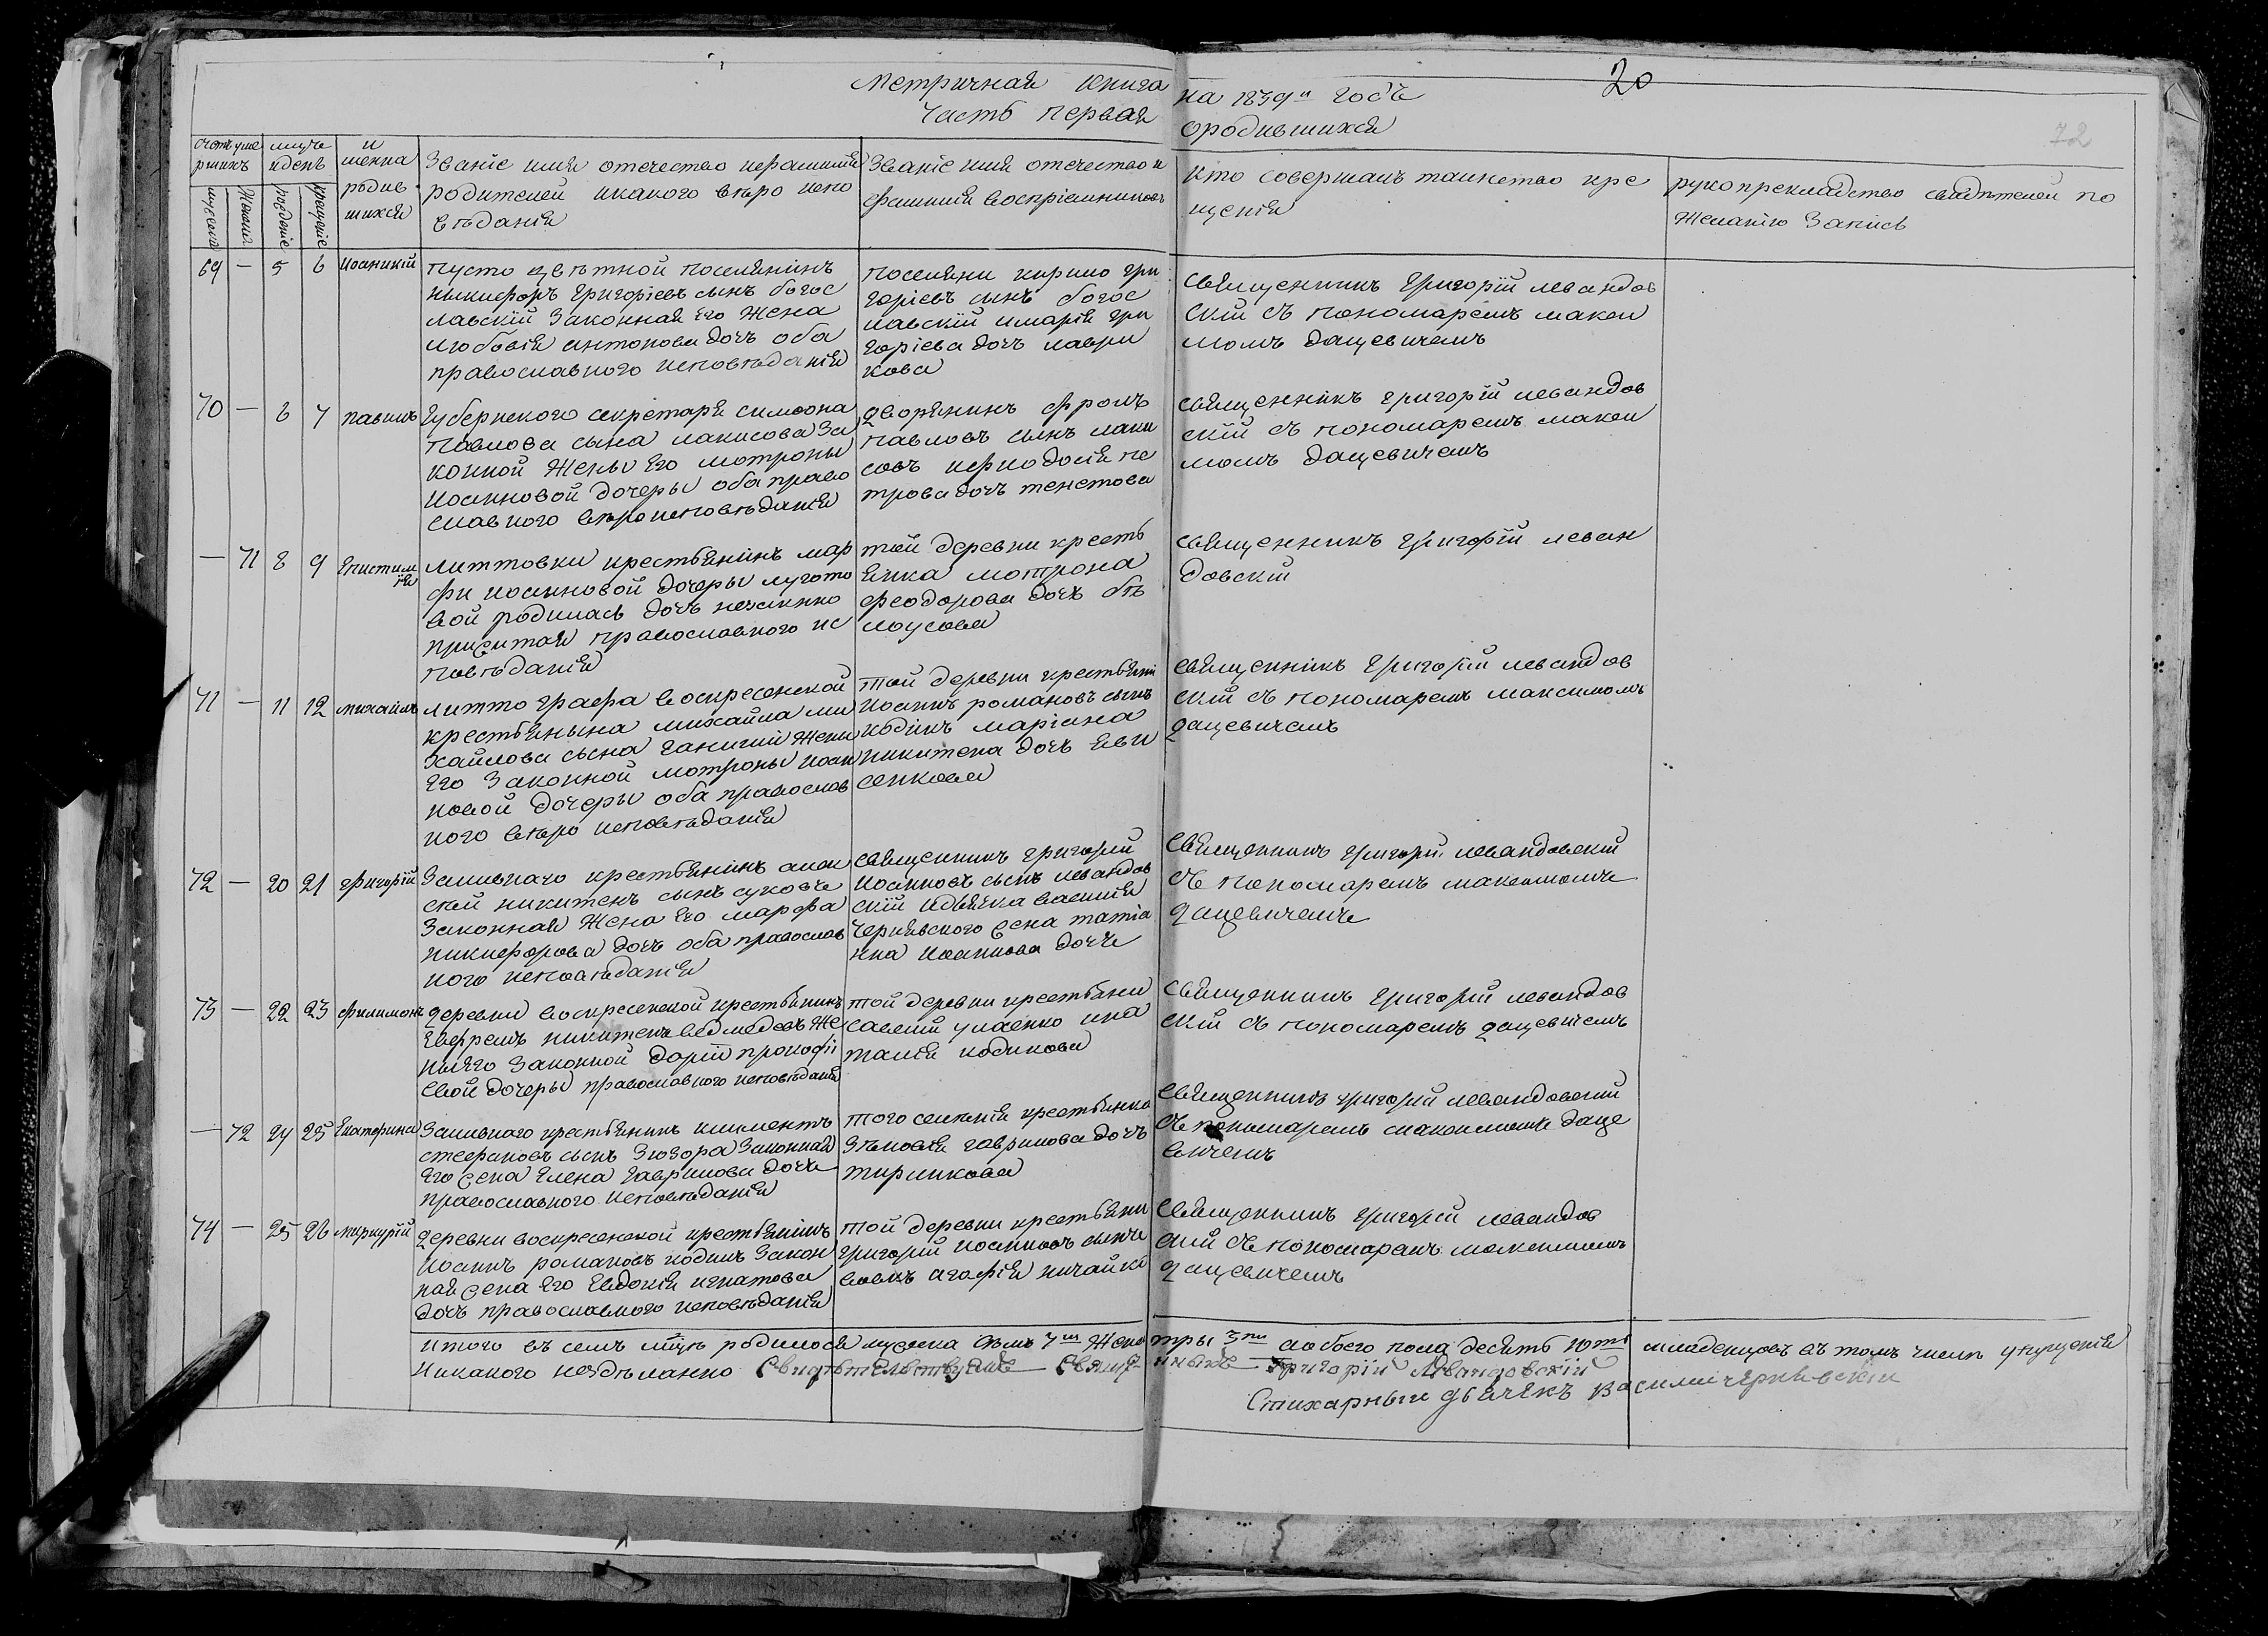 20
72
Метричная книга на 1839и годъ
Часть первая ородившихся
муческа
Женска
рожденіе
крещеніе
и
менна
родив
шихся
Званіе имя отечество ифамилия
родителей икакого веро испо
веданія
Званіе имя отечество и
фамилия воспріемниковъ
Кто совершалъ таинство кре
щенія
рукоприкладство свидетелей по
Желанію Запись
69 — 5 6 Иоаникій
пусто цветной поселянинъ
никифоръ григоріевъ сынъ богос
лавскій Законная Его Жена
любовія антонова дочъ оба
православного исповеданія
поселяни кирило гри
горіевъ сынъ богос
лавскій имарія гри
горіева дочъ лаври
кова
Священникъ Григорій левандов
скій съ пономаремъ макси
момъ дацевичемъ
70 — 6 7 павилъ
Губернского секретаря симеона
павлова сына лакисова За
конной Жены Его мотроны
Иоанновой дочеры оба право
славного вероисповеданія
дворянинъ фролъ
павловъ сынъ лаки
совъ ифиодосія пе
трова дочъ тенетова
Священникъ григорій левандов
скій съ пономаремъ макси
момъ дацевичемъ
— 71 8 9 Епистим
ія
литтовки крестьянинъ мар
фи иоанновой дочеры лугото
вой родилась дочъ незаконно
православного ис
поведанія
той деревни кресть
янка мотрона
феодорова дочъ бе
лоусова
Священникъ Григорій леван
довскій
71 — 11 12 михайлъ
литто графа воскресенской
крестьянына михайла ми
хайлова сына Жены
Его Законной мотроны Иоан
новой дочеры оба православ
ного веро исповеданія
той деревни крестьяни
Иоанъ романовъ сынъ
кодикъ маріана
никитена дочъ Еви
сенкова
Священникъ григорій левандов
скій съ пономаремъ максимомъ
дацевичемъ
72 — 20 21 григорій
крестьянинъ алек
сей никитенъ сынъ суховъ
Законная Жена Его марфа
никифорова дочъ оба православ
ного исповеданія
Священникъ григорій
Иоанновъ сынъ левандов
скій идьячка василія
чернявского Жена татіа
нна Иоаннова дочъ
Священникъ григорій левандовскій
съ пономаремъ максимомъ
дацевичемъ
73 — 22 23 филимонъ
деревни воскресенской крестьянинъ
Евфремъ никитенъ ведмедевъ Же
ныего Законной Дарій прокофі
евой дочеры православного исповеданія
той деревни крестьяни
савелій уласенко ина
талія кодикова
Священникъ григорій левандов
скій съ пономаремъ дацевичемъ
— 72 24 25 Екатерина
крестьянинъ климентъ
стефановъ сынъ Зюзюра Законная
Его Жена Елена гаврилова дочъ
православного исповеданія
того селенія крестьянка
Зеновія гаврилова дочъ
тирликова
Священникъ григорій левандовскій
съ пономаремъ максимомъ даце
вичемъ
74 — 25 26 миркурій
деревни воскресенской крестьянинъ
Иоанъ романовъ кодикъ Закон
ная Жена Его Евдокія игнатова
дочъ православного исповеданія
той деревни крестьяни
григорій Иоанновъ сынъ
вовкъ агафія ничайко
Священникъ григорій левандов
скій съ пономаремъ максимомъ
дацевичемъ
Итого въ семъ мцъ родилося мужеска семъ 7м Женска тры 3ри аобоего пола десять 10ть младенцовъ въ томъ числе упущенія
никакого несделанно Свидетелствуемъ Священникъ Григорій Левандовскій
Стихарный дьячекъ василій чернявскій